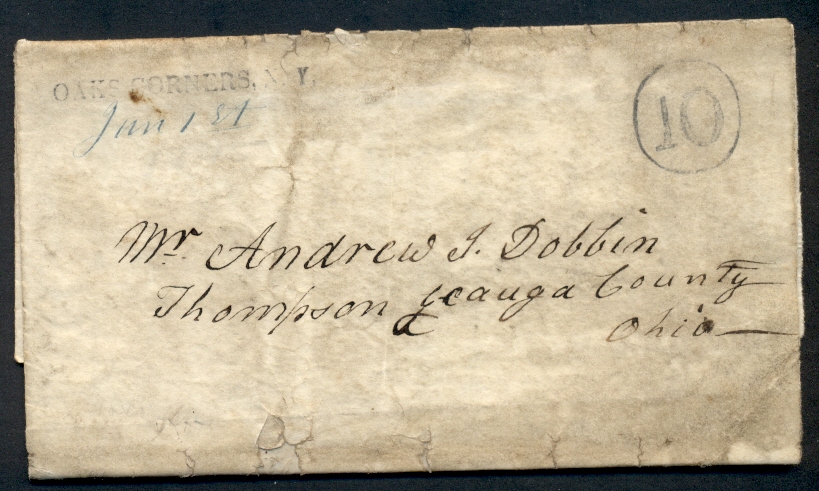 OAKS CORNERS, N.Y.
Jan 1st
10
Mr. Andrew J. Dobbin
Thompson Geauga County
Ohio